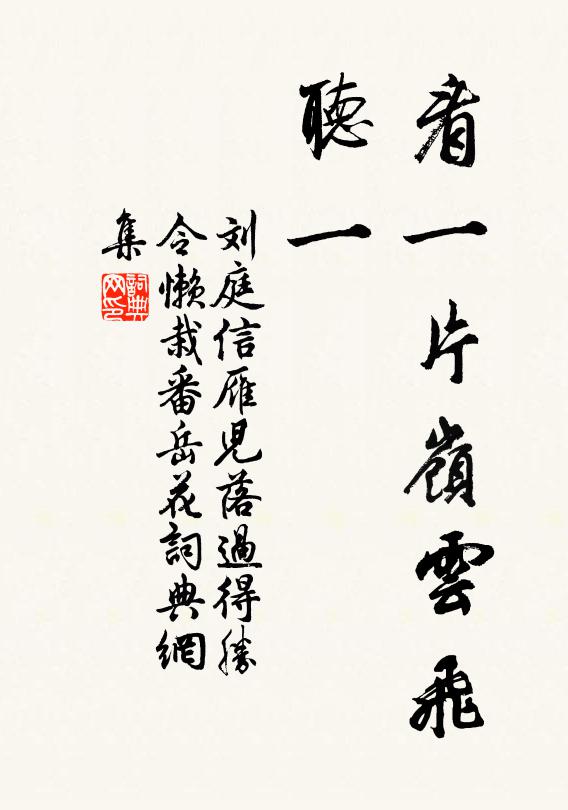 看一片嶺雲飛
聽一
刘庭信雁兒落過得勝
令懶栽番岳花詞典網
集
詞典
网印